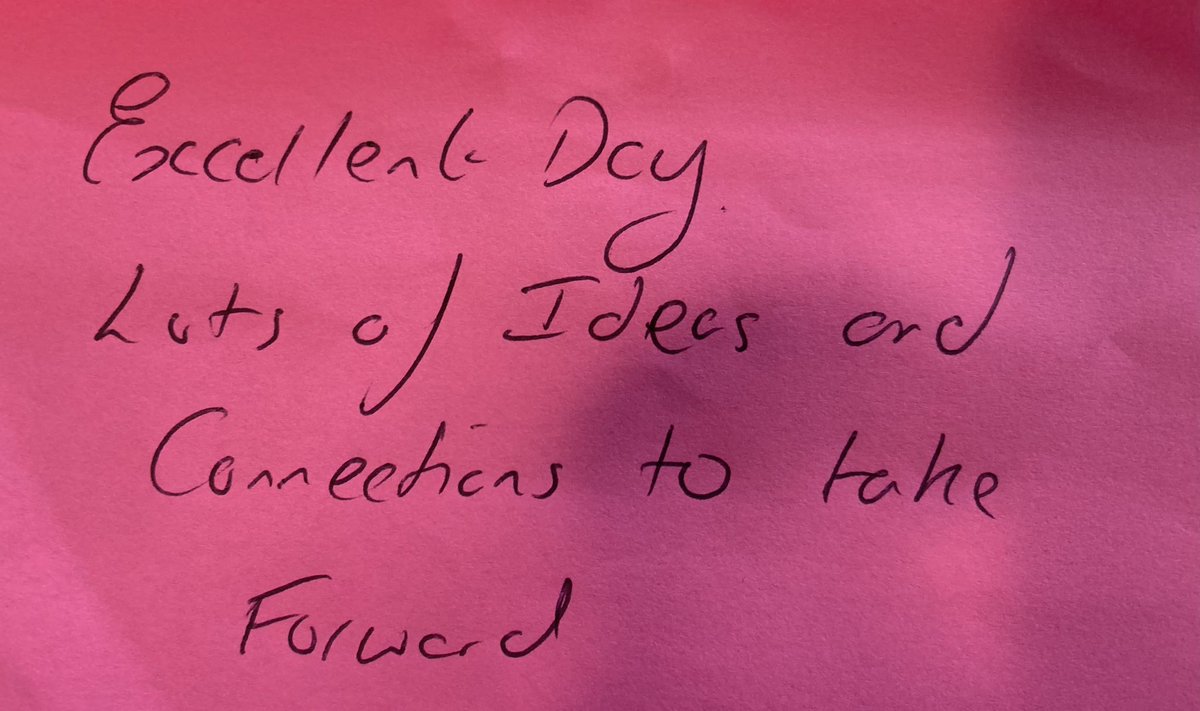 Excellent Day.
Lots of Ideas and
Connections to take
Forward